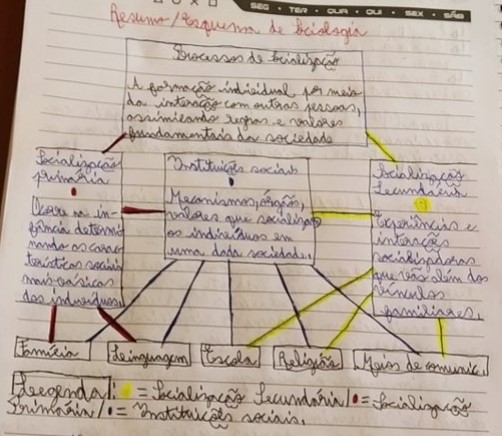 SEG • TER • QUA • QUI • SEX • SÁB
Resumo/Esquema de Sociologia
Processos de Socialização
A formação individual por meio
da interação com outras pessoas,
assimilando regras e valores
fundamentais da sociedade
Socialização
primária
Ocorre na in-
fância determi-
nando as carac-
terísticas sociais
mais básicas
dos indivíduos.
Instituições sociais
Mecanismos, órgãos,
valores que socializam
os indivíduos em
uma dada sociedade.
Socialização
Secundária
Experiências e
interações
socializadoras
que vão além dos
vínculos
familiares.
Família
Linguagem
Escola
Religião
Meios de comunic.
Legenda: = Socialização Secundária/ = Socialização
Primária/ = Instituições sociais.